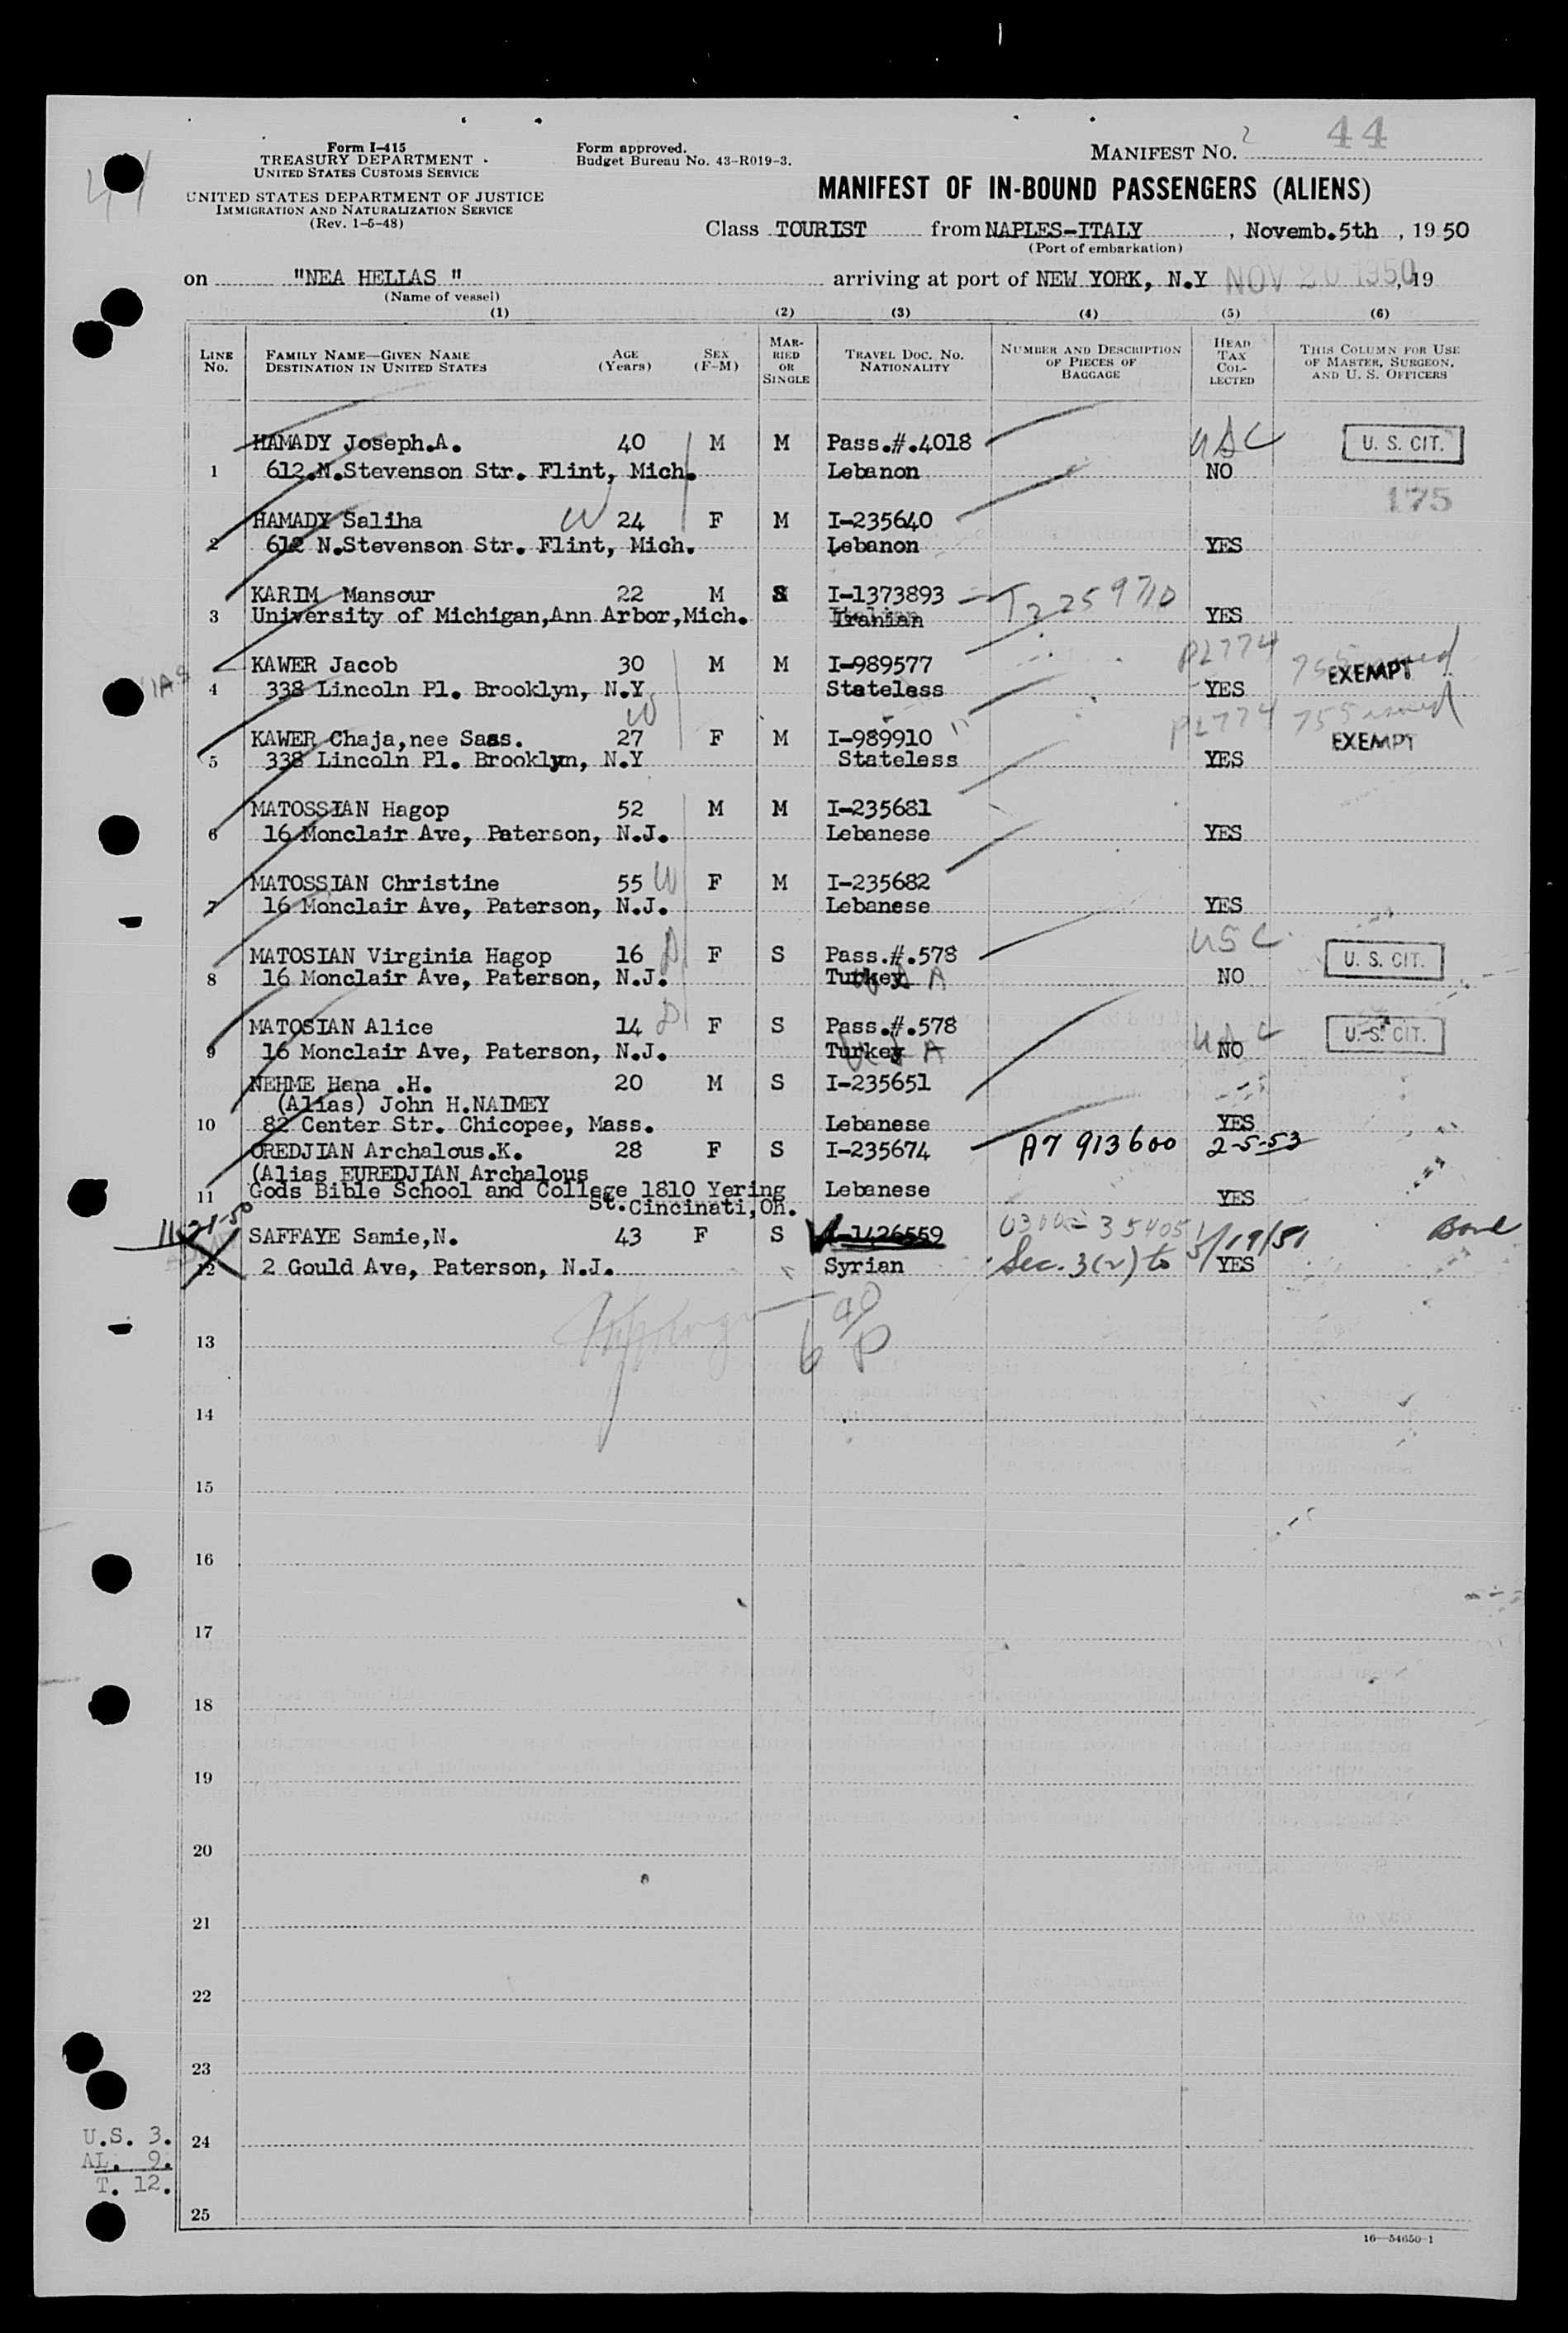 44
2
41
Form I-415
TREASURY DEPARTMENT
UNITED STATES CUSTOMS SERVICE
UNITED STATES DEPARTMENT OF JUSTICE
IMMIGRATION AND NATURALIZATION SERVICE
(Rev. 1-5-48)
Form approved.
Budget Bureau No. 43-R019-3.
MANIFEST NO.
MANIFEST OF IN-BOUND PASSENGERS (ALIENS)
Class TOURIST from NAPLES-ITALY, Novemb.5th, 1950
(Port of embarkation)
on "NEA HELLAS" arriving at port of NEW YORK, N.Y NOV 20 1950, 19
(Name of vessel)
(1) (2) (3) (4) (5) (6)
LINE No. FAMILY NAME—GIVEN NAME DESTINATION IN UNITED STATES AGE (Years) SEX (F-M) MARRIED OR SINGLE TRAVEL DOC. NO. NATIONALITY NUMBER AND DESCRIPTION OF PIECES OF BAGGAGE HEAD TAX COLLECTED THIS COLUMN FOR USE OF MASTER, SURGEON, AND U. S. OFFICERS
HAMADY Joseph.A. 40 M M Pass.#.4018 USC U. S. CIT.
1 612.N.Stevenson Str. Flint, Mich. Lebanon NO
175
HAMADY Saliha W 24 F M I-235640
2 612 N.Stevenson Str. Flint, Mich. Lebanon YES
KARIM Mansour 22 M S I-1373893 T2259710
3 University of Michigan,Ann Arbor,Mich. Iranian YES
KAWER Jacob 30 M M I-989577 PL774 755 issued EXEMPT
4 338 Lincoln Pl. Brooklyn, N.Y Stateless YES
W PL774 755 issued
KAWER Chaja,nee Sass. 27 F M I-989910 EXEMPT
5 338 Lincoln Pl. Brooklyn, N.Y Stateless YES
MATOSSIAN Hagop 52 M M I-235681
6 16 Monclair Ave, Paterson, N.J. Lebanese YES
MATOSSIAN Christine 55 W F M I-235682
7 16 Monclair Ave, Paterson, N.J. Lebanese YES
MATOSIAN Virginia Hagop 16 D F S Pass.#.578 USC U. S. CIT.
8 16 Monclair Ave, Paterson, N.J. Turkey USA NO
MATOSIAN Alice 14 D F S Pass.#.578 USC U. S. CIT.
9 16 Monclair Ave, Paterson, N.J. Turkey USA NO
NEHME Hana .H. 20 M S I-235651
(Alias) John H.NAIMEY
10 82 Center Str. Chicopee, Mass. Lebanese YES
OREDJIAN Archalous.K. 28 F S I-235674 A7 913600 2-5-53
(Alias EUREDJIAN Archalous
11 Gods Bible School and College 1810 Yering Lebanese YES
St.Cincinati,Oh.
11-21-50
SAFFAYE Samie,N. 43 F S I-1426559 0300-354051 Bond
12 2 Gould Ave, Paterson, N.J. Syrian Sec. 3(2) to 5/19/51 YES
13
14
15
16
17
18
19
20
21
22
23
24
25
U.S. 3.
AL. 9.
T. 12.
16—54650-1